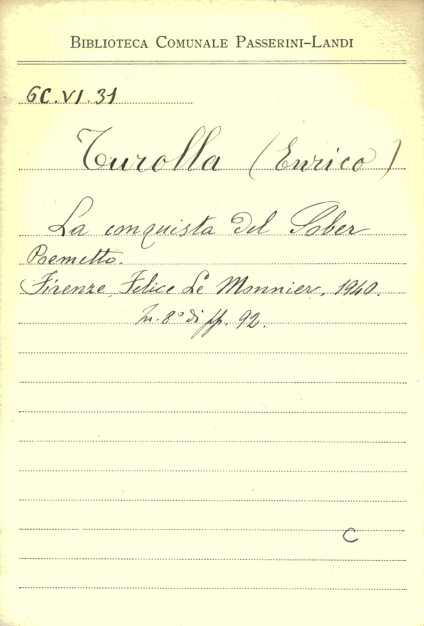 BIBLIOTECA COMUNALE PASSERINI-LANDI
6C.VI.31
Turolla (Enrico)
La conquista del Sober
Poemetto.
Firenze, Felice Le Monnier, 1940.
In-8° di pp. 92.
C